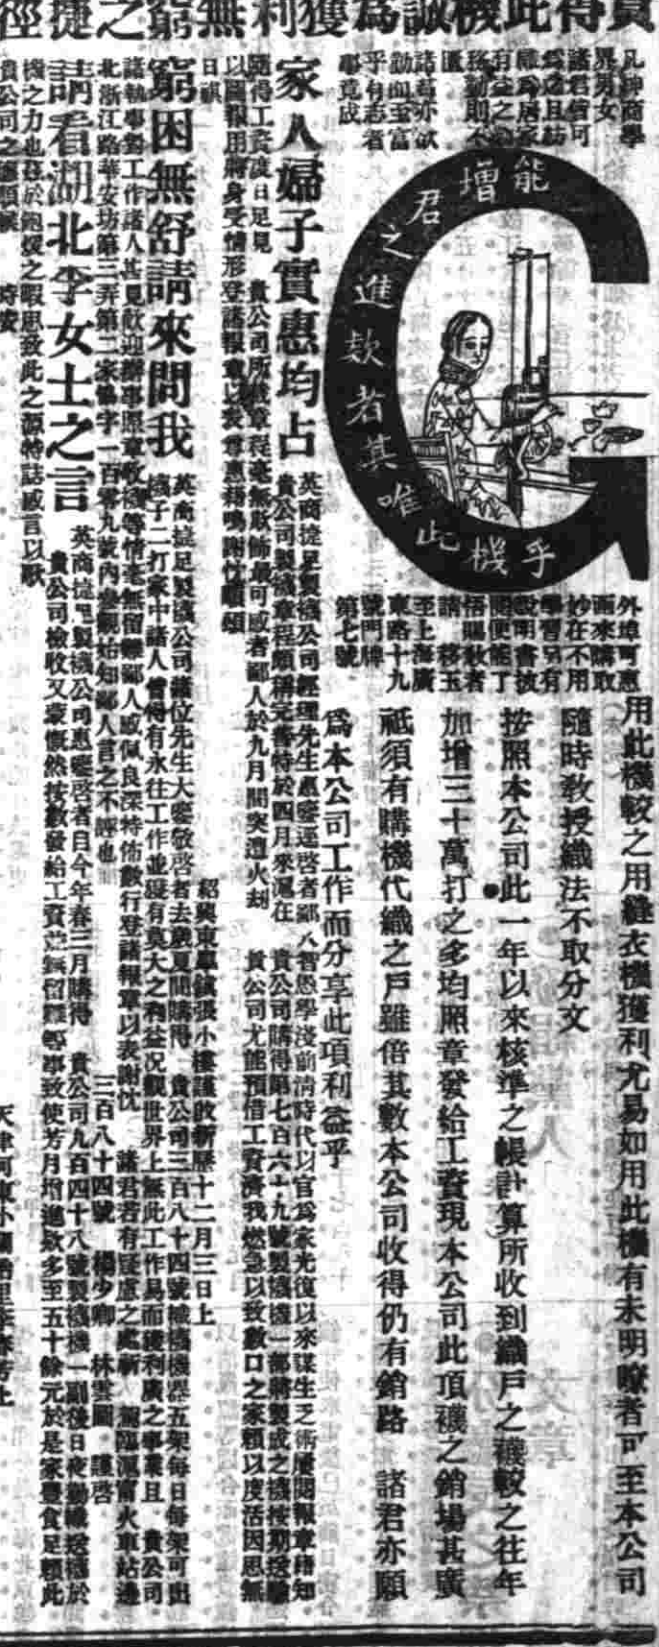 得此機誠為獲利無窮之捷徑
凡紳商學
界男女
諸君皆可
為之且訪
雖為居家
有益之
務勤則不
匱
諸君亦欲
勤而至富
乎有志者
事竟成
能增君之進欵者其唯此機乎
外埠可惠
函來購取
妙在不用
學習另有
說明書披
閱便能了
悟賜敎者
請移玉
至上海廣
東路十九
號門牌
第七號
用此機較之用縫衣機獲利尤易如用此機有未明瞭者可至本公司
隨時敎授織法不取分文
按照本公司此一年以來核準之帳計算所收到織戶之襪較之往年
加增三十萬打之多均照章發給工資現本公司此項襪之銷場甚廣
祗須有購機代織之戶雖倍其數本公司收得仍有銷路 諸君亦願
為本公司工作而分享此項利益乎
家人婦子實惠均占
英商捷足製襪公司經理先生惠鑒逕啓者鄙人智愚學淺前淸時代以官為家光復以來謀生乏術屢閱報章藉知
貴公司製襪章程頗稱完善特於四月來滬在 貴公司購得第七百六十九號製襪機一部將製成之襪按期送驗
隨得工資度日足見 貴公司所載章程毫無欺飾最可感者鄙人於九月間突遭火刼 貴公司尤能預借工資濟我燃急以致數口之家賴以度活因思無
以圖報用將身受情形登諸報章以表尊惠藉鳴謝忱順頌
日祺 紹興東臯鎮張小樓謹啟新歷十二月三日上
窮困無舒請來問我
英商捷足製襪公司諸位先生大鑒敬啓者去歲夏間購得 貴公司三百八十四號織襪機器五架每日每架可出
襪子二打家中諸人皆得有永往工作並獲有莫大之利益况觀世界上無此工作易而獲利廣之事業且 貴公司
諸執事對工作諸人甚見歡迎辦事照章收襪等情毫無留難鄙人感佩良深特佈數行登諸報章以表謝忱 諸君若有疑慮之處祈 駕臨滬甯火車站邊
北浙江路華安坊第三弄第二家魯字一百零九號內參觀始知鄙人言之不誣也 三百八十四號 楊少卿 林雲圃 謹啓
請看湖北李女士之言
英商捷足製襪公司惠鑒啓者自今年春三月購得 貴公司九百四十八號製襪機一副後日夜勤織送襪於
貴公司檢收又蒙慨然按數發給工資並無留難等事致使芳月增進欵多至五十餘元於是家豐食足賴此
機之力也茲於飽煖之暇思致此之源特誌感言以歌